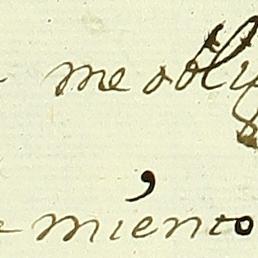 me oblig
miento